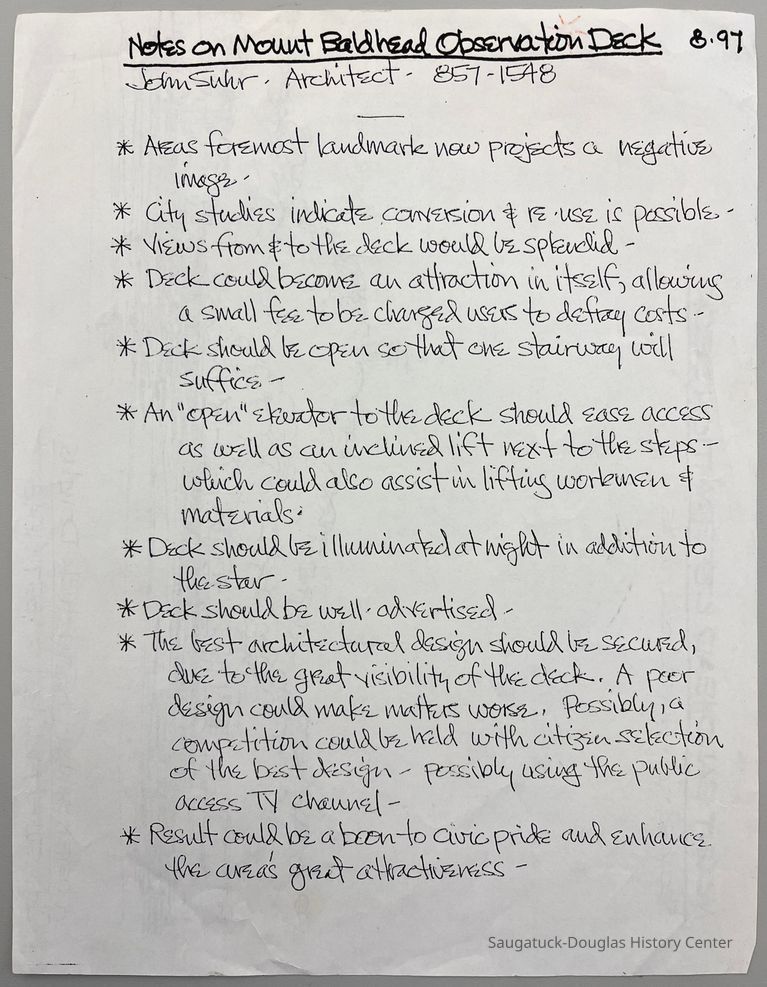 Notes on Mount Baldhead Observation Deck 8.97
John Suhr. Architect - 857-1548
* Areas foremost landmark now projects a negative
image -
* City studies indicate conversion & re-use is possible -
* Views from & to the deck would be splendid -
* Deck could become an attraction in itself, allowing
a small fee to be charged users to defray costs -
* Deck should be open so that one stairway will
suffice -
* An "open" elevator to the deck should ease access
as well as an inclined lift next to the steps -
which could also assist in lifting workmen &
materials.
* Deck should be illuminated at night in addition to
the star -
* Deck should be well-advertised -
* The best architectural design should be secured,
due to the great visibility of the deck. A poor
design could make matters worse. Possibly, a
competition could be held with citizen selection
of the best design - possibly using the public
access TV channel -
* Result could be a boon to civic pride and enhance
the area's great attractiveness -
Saugatuck-Douglas History Center